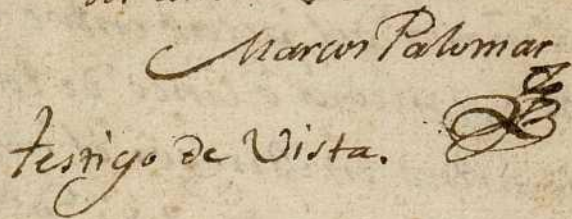 Marcos Palomar
testigo de Vista.